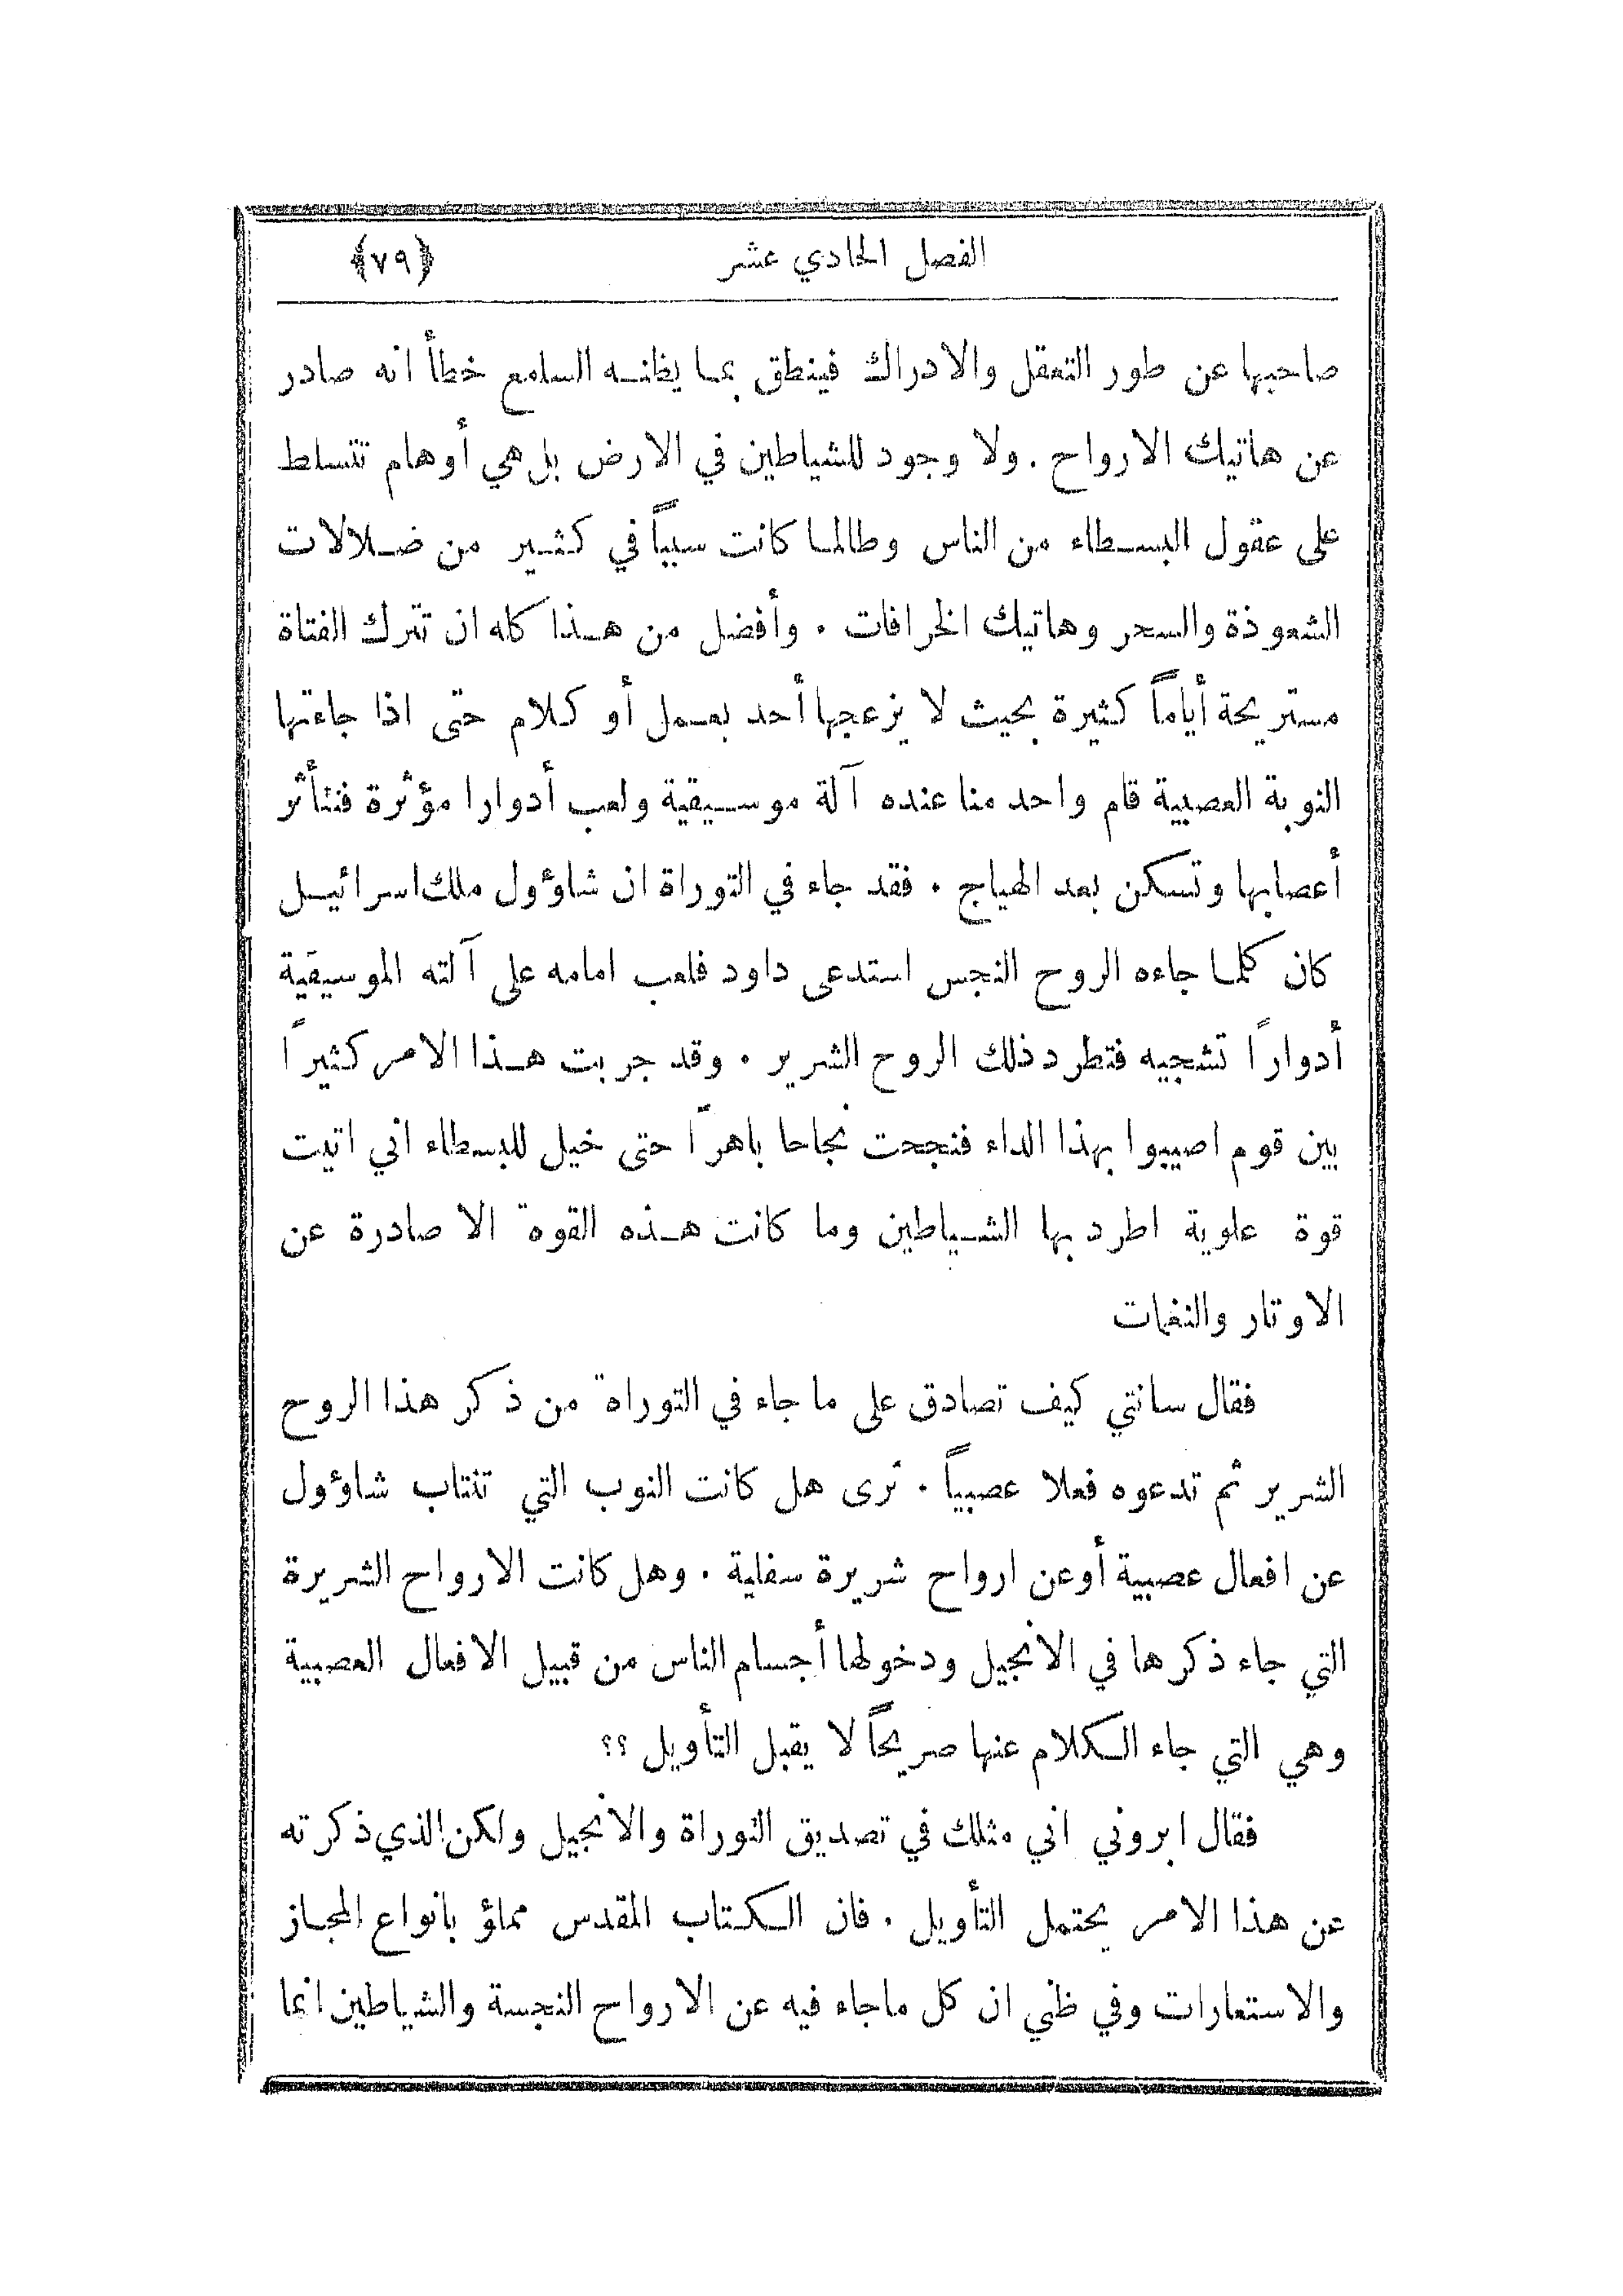 الفصل الحادي عشر ﴿٧٩﴾
صاحبها عن طور التعقل والادراك فينطق بما يظنه السامع خطأ انه صادر
عن هاتيك الارواح . ولا وجود للشياطين في الارض بل هي أوهام تتسلط
على عقول البسطاء من الناس وطالما كانت سبباً في كثير من ضلالات
الشعوذة والسحر وهاتيك الخرافات . وأفضل من هذا كله ان تترك الفتاة
مستريحة أياماً كثيرة بحيث لا يزعجها أحد بعمل أو كلام حتى اذا جاءتها
النوبة العصبية قام واحد منا عنده آلة موسيقية ولعب أدوارا مؤثرة فتتأثر
أعصابها وتسكن بعد الهياج . فقد جاء في التوراة ان شاؤول ملك اسرائيل
كان كلما جاءه الروح النجس استدعى داود فلعب امامه على آلته الموسيقية
أدواراً تشجيه فتطرد ذلك الروح الشرير . وقد جربت هذا الامر كثيراً
بين قوم اصيبوا بهذا الداء فنجحت نجاحا باهراً حتى خيل للبسطاء اني اتيت
قوة علوية اطرد بها الشياطين وما كانت هذه القوة الا صادرة عن
الاوتار والنغمات
فقال سانتي كيف تصادق على ما جاء في التوراة من ذكر هذا الروح
الشرير ثم تدعوه فعلا عصبياً . ترى هل كانت النوب التي تنتاب شاؤول
عن افعال عصبية أوعن ارواح شريرة سفلية . وهل كانت الارواح الشريرة
التي جاء ذكرها في الانجيل ودخولها أجسام الناس من قبيل الافعال العصبية
وهي التي جاء الكلام عنها صريحاً لا يقبل التأويل ؟؟
فقال ابروني اني مثلك في تصديق التوراة والانجيل ولكن الذي ذكرته
عن هذا الامر يحتمل التأويل . فان الكتاب المقدس مملؤ بانواع المجاز
والاستعارات وفي ظني ان كل ماجاء فيه عن الارواح النجسة والشياطين انما